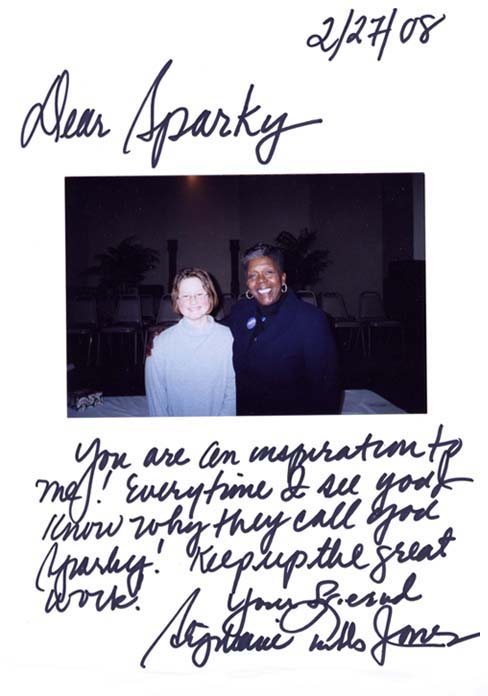 2/27/08
Dear Sparky
You are an inspiration to
me! Everytime I see you I
know why they call you
Sparky! Keep up the great
work.
Your friend
Stephanie Tubbs Jones